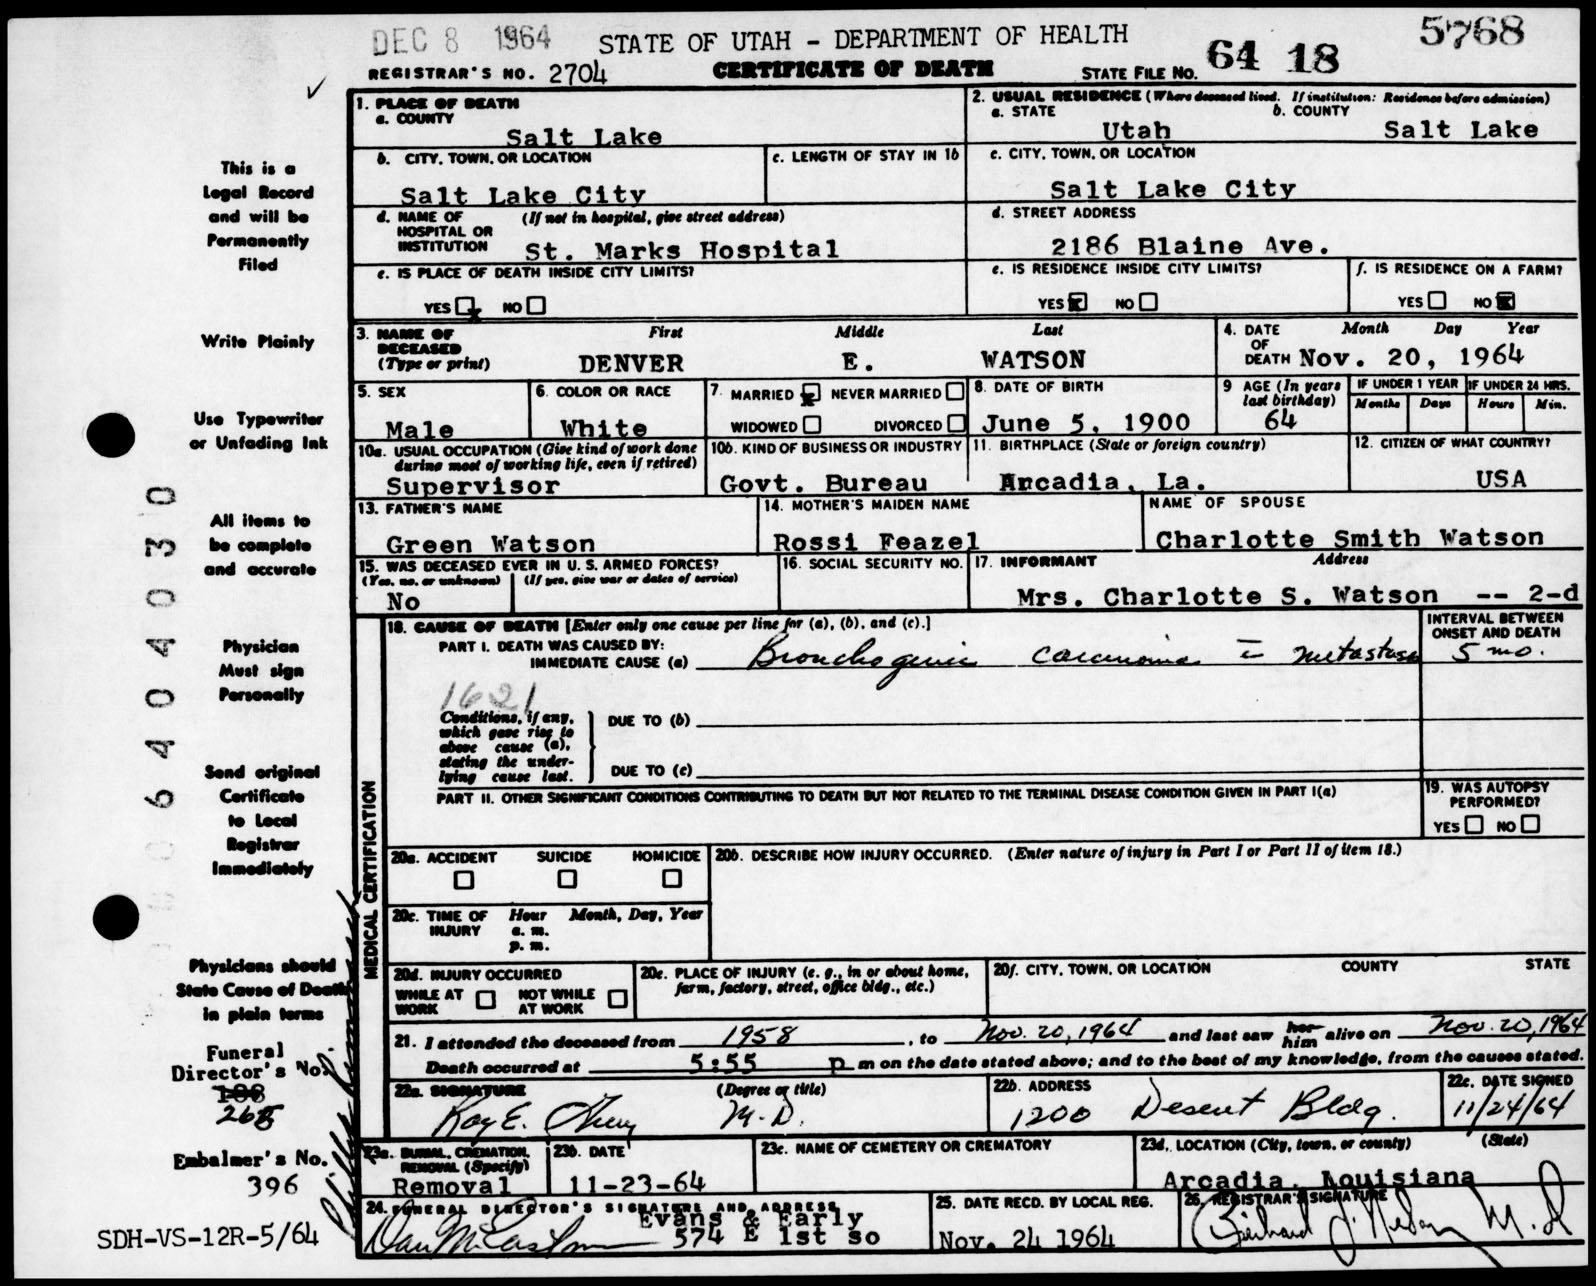 DEC 8 1964
STATE OF UTAH - DEPARTMENT OF HEALTH
5768
REGISTRAR'S NO. 2704
CERTIFICATE OF DEATH
STATE FILE NO. 64 18
1. PLACE OF DEATH
a. COUNTY
Salt Lake
2. USUAL RESIDENCE (Where deceased lived. If institution: Residence before admission)
a. STATE b. COUNTY
Utah Salt Lake
b. CITY, TOWN, OR LOCATION
Salt Lake City
c. LENGTH OF STAY IN 1b
c. CITY, TOWN, OR LOCATION
Salt Lake City
d. NAME OF (If not in hospital, give street address)
HOSPITAL OR
INSTITUTION St. Marks Hospital
d. STREET ADDRESS
2186 Blaine Ave.
e. IS PLACE OF DEATH INSIDE CITY LIMITS?
YES x NO
e. IS RESIDENCE INSIDE CITY LIMITS?
YES x NO
f. IS RESIDENCE ON A FARM?
YES NO x
3. NAME OF First Middle Last
DECEASED
(Type or print) DENVER E. WATSON
4. DATE Month Day Year
OF
DEATH Nov. 20, 1964
5. SEX
Male
6. COLOR OR RACE
White
7. MARRIED x NEVER MARRIED
WIDOWED DIVORCED
8. DATE OF BIRTH
June 5, 1900
9 AGE (In years
last birthday)
64
IF UNDER 1 YEAR
Months Days
IF UNDER 24 HRS.
Hours Min.
10a. USUAL OCCUPATION (Give kind of work done
during most of working life, even if retired)
Supervisor
10b. KIND OF BUSINESS OR INDUSTRY
Govt. Bureau
11. BIRTHPLACE (State or foreign country)
Arcadia, La.
12. CITIZEN OF WHAT COUNTRY?
USA
13. FATHER'S NAME
Green Watson
14. MOTHER'S MAIDEN NAME
Rossi Feazel
NAME OF SPOUSE
Charlotte Smith Watson
15. WAS DECEASED EVER IN U. S. ARMED FORCES?
(Yes, no, or unknown) (If yes, give war or dates of service)
No
16. SOCIAL SECURITY NO.
17. INFORMANT Address
Mrs. Charlotte S. Watson -- 2-d
MEDICAL CERTIFICATION
18. CAUSE OF DEATH [Enter only one cause per line for (a), (b), and (c).]
INTERVAL BETWEEN
ONSET AND DEATH
PART I. DEATH WAS CAUSED BY:
IMMEDIATE CAUSE (a) Bronchogenic carcinoma c̄ metastases 5 mo.
1621
Conditions, if any,
which gave rise to
above cause (a),
stating the under-
lying cause last.
DUE TO (b)
DUE TO (c)
PART II. OTHER SIGNIFICANT CONDITIONS CONTRIBUTING TO DEATH BUT NOT RELATED TO THE TERMINAL DISEASE CONDITION GIVEN IN PART I(a)
19. WAS AUTOPSY
PERFORMED?
YES NO
20a. ACCIDENT SUICIDE HOMICIDE
20b. DESCRIBE HOW INJURY OCCURRED. (Enter nature of injury in Part I or Part II of item 18.)
20c. TIME OF Hour Month, Day, Year
INJURY a. m.
p. m.
20d. INJURY OCCURRED
WHILE AT NOT WHILE
WORK AT WORK
20e. PLACE OF INJURY (e. g., in or about home,
farm, factory, street, office bldg., etc.)
20f. CITY, TOWN, OR LOCATION COUNTY STATE
21. I attended the deceased from 1958, to Nov. 20, 1964 and last saw her him alive on Nov. 20, 1964
Death occurred at 5:55 p m on the date stated above; and to the best of my knowledge, from the causes stated.
22a. SIGNATURE (Degree or title)
Ray E. M.D.
22b. ADDRESS
1200 Deseret Bldg.
22c. DATE SIGNED
11/24/64
23a. BURIAL, CREMATION,
REMOVAL (Specify)
Removal
23b. DATE
11-23-64
23c. NAME OF CEMETERY OR CREMATORY
23d. LOCATION (City, town, or county) (State)
Arcadia, Louisiana
24. FUNERAL DIRECTOR'S SIGNATURE AND ADDRESS
Evans & Early
574 E 1st so
25. DATE RECD. BY LOCAL REG.
Nov. 24 1964
26. REGISTRAR'S SIGNATURE
M.D.
This is a
Legal Record
and will be
Permanently
Filed
Write Plainly
Use Typewriter
or Unfading Ink
All items to
be complete
and accurate
Physician
Must sign
Personally
Send original
Certificate
to Local
Registrar
Immediately
Physicians should
State Cause of Death
in plain terms
Funeral
Director's No.
188
268
Embalmer's No.
396
SDH-VS-12R-5/64
0 6 4 0 4 0 3 0